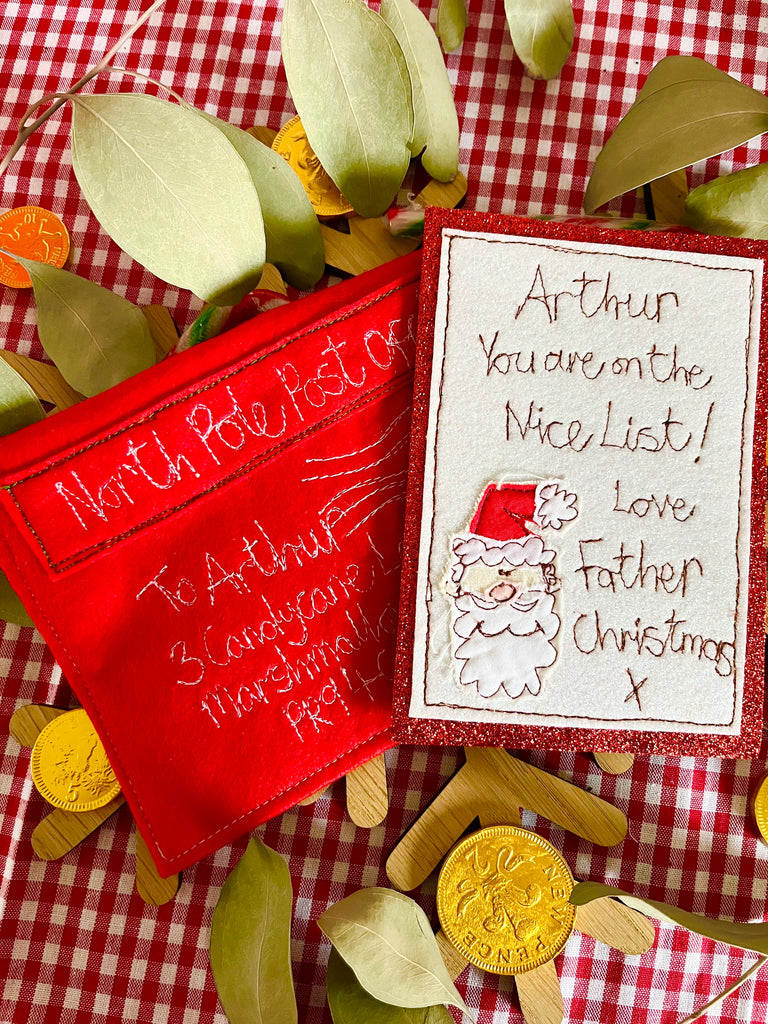 North Pole Post Off
To Arthur
3 Candycane L
Marshmallo
PR9
Arthur
You are on the
Nice List!
Love
Father
Christmas
x
2
NEW
PENCE